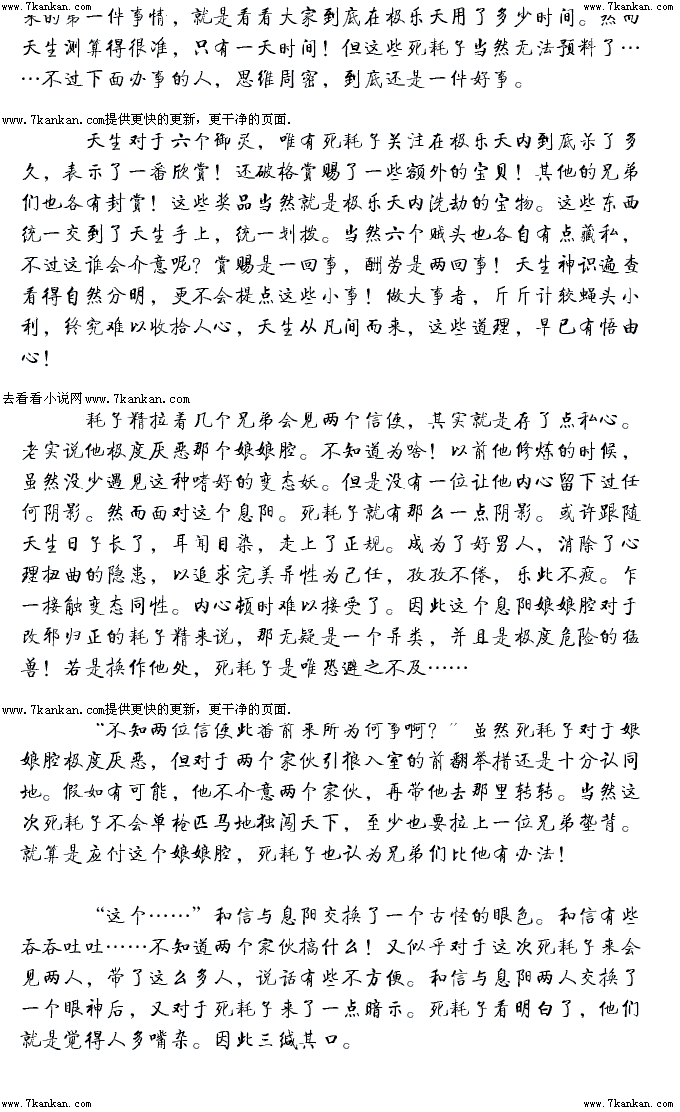 www.7kankan.com www.7kankan.com
来的第一件事情，就是看看大家到底在极乐天用了多少时间。然而
天生测算得很准，只有一天时间！但这些死耗子当然无法预料了…
…不过下面办事的人，思维周密，到底还是一件好事。
www.7kankan.com提供更快的更新，更干净的页面.
天生对于六个御灵，唯有死耗子关注在极乐天内到底杀了多
久，表示了一番欣赏！还破格赏赐了一些额外的宝贝！其他的兄弟
们也各有封赏！这些奖品当然就是极乐天内洗劫的宝物。这些东西
统一交到了天生手上，统一划拨。当然六个贼头也各自有点藏私，
不过这谁会介意呢？赏赐是一回事，酬劳是两回事！天生神识遍查
看得自然分明，更不会提点这些小事！做大事者，斤斤计较蝇头小
利，终究难以收拾人心，天生从凡间而来，这些道理，早已有悟由
心！
去看看小说网www.7kankan.com
耗子精拉着几个兄弟会见两个信使，其实就是存了点私心。
老实说他极度厌恶那个娘娘腔。不知道为啥！以前他修炼的时候，
虽然没少遇见这种嗜好的变态妖。但是没有一位让他内心留下过任
何阴影。然而面对这个息阳。死耗子就有那么一点阴影。或许跟随
天生日子长了，耳闻目染，走上了正规。成为了好男人，消除了心
理扭曲的隐患，以追求完美异性为己任，孜孜不倦，乐此不疲。乍
一接触变态同性。内心顿时难以接受了。因此这个息阳娘娘腔对于
改邪归正的耗子精来说，那无疑是一个异类，并且是极度危险的猛
兽！若是换作他处，死耗子是唯恐避之不及……
www.7kankan.com提供更快的更新，更干净的页面.
“不知两位信使此番前来所为何事啊？”虽然死耗子对于娘
娘腔极度厌恶，但对于两个家伙引狼入室的前翻举措还是十分认同
地。假如有可能，他不介意两个家伙，再带他去那里转转。当然这
次死耗子不会单枪匹马地独闯天下，至少也要拉上一位兄弟垫背。
就算是应付这个娘娘腔，死耗子也认为兄弟们比他有办法！
“这个……”和信与息阳交换了一个古怪的眼色。和信有些
吞吞吐吐……不知道两个家伙搞什么！又似乎对于这次死耗子来会
见两人，带了这么多人，说话有些不方便。和信与息阳两人交换了
一个眼神后，又对于死耗子来了一点暗示。死耗子看明白了，他们
就是觉得人多嘴杂。因此三缄其口。
www.7kankan.com www.7kankan.com